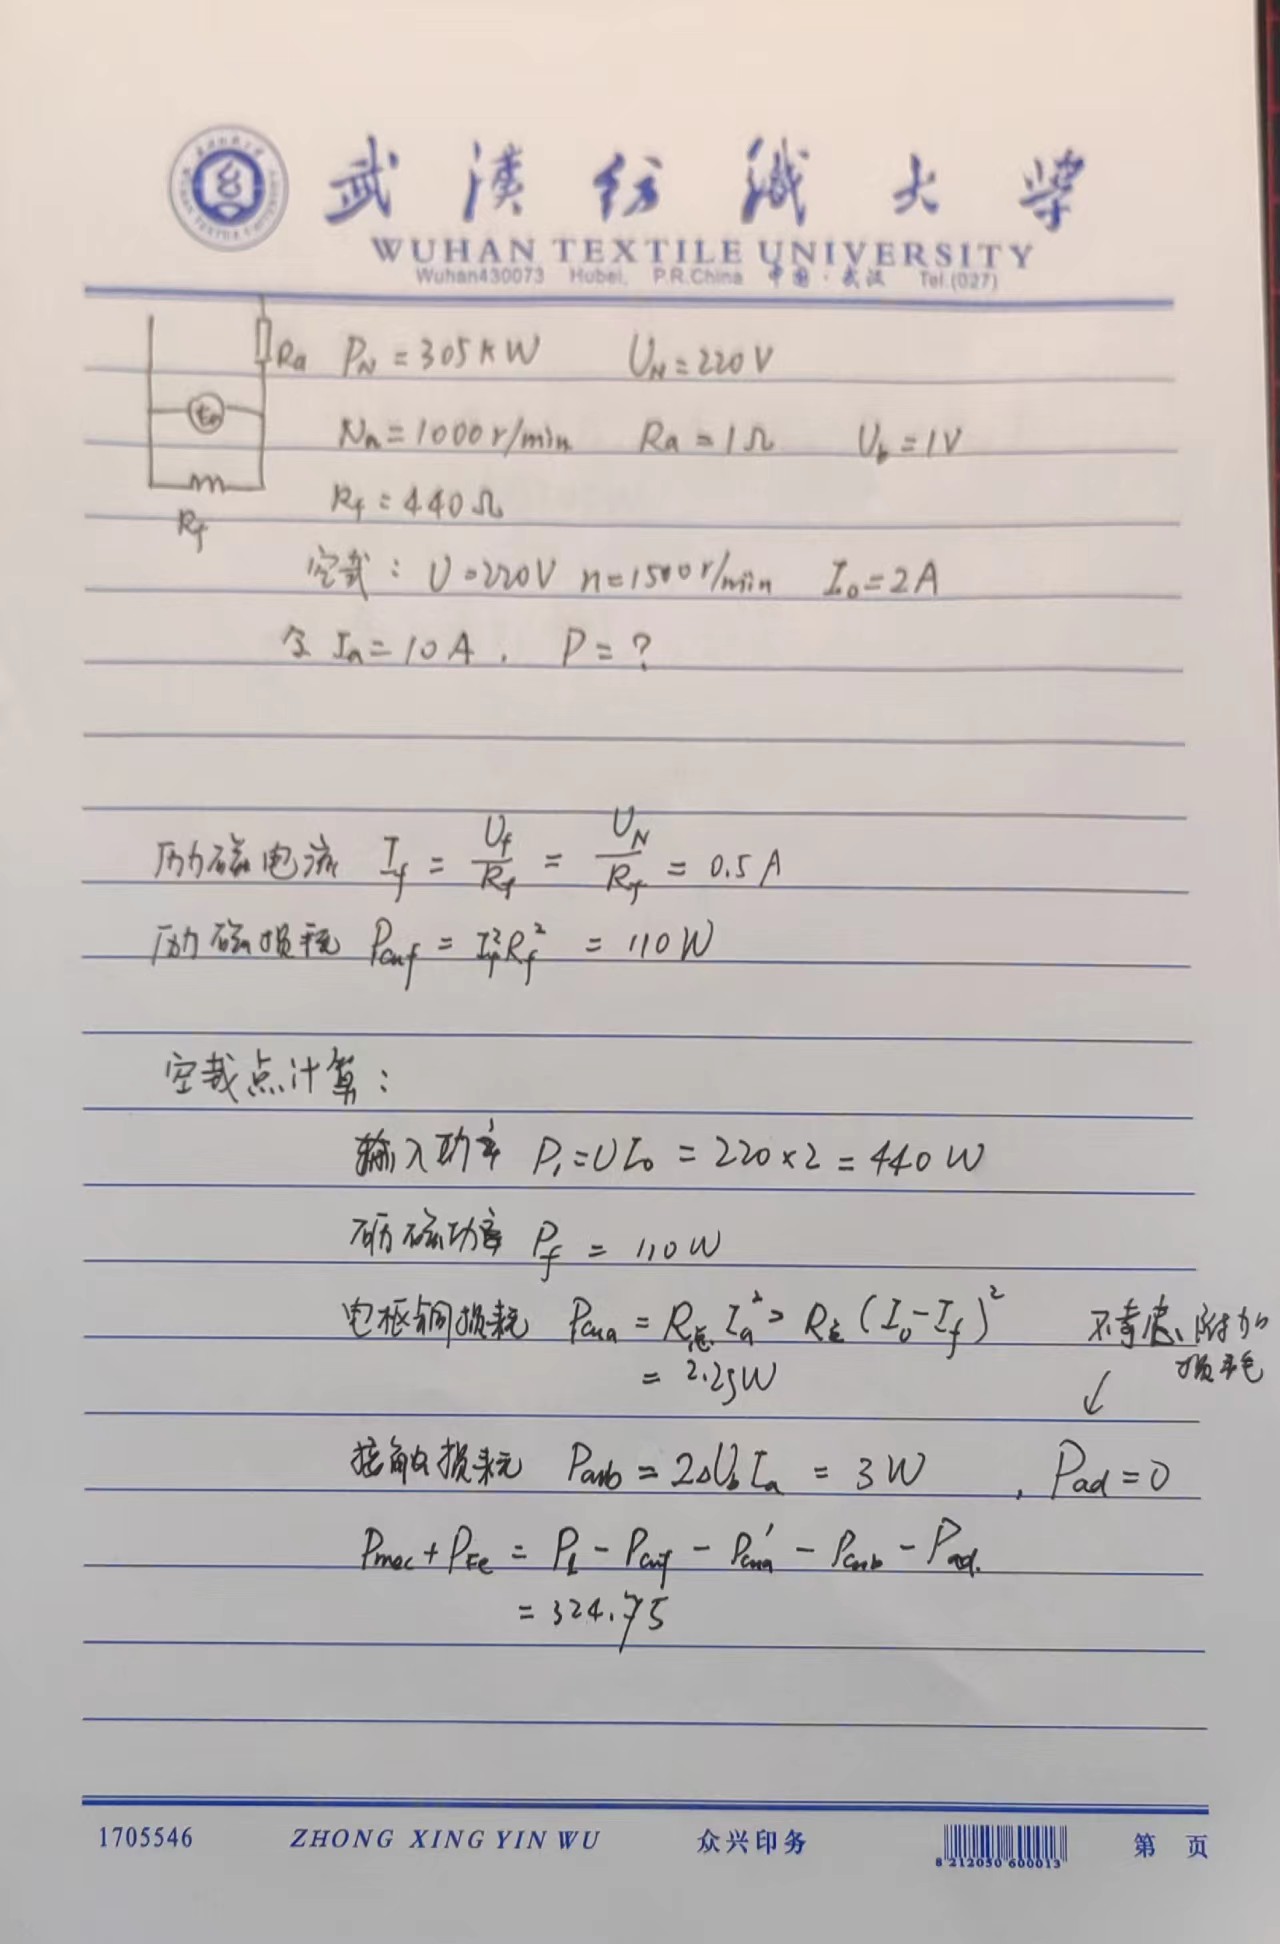 武汉纺织大学
WUHAN TEXTILE UNIVERSITY
Wuhan430073 Hubei, P.R.China 中国·武汉 Tel.(027)
Ra PN = 305KW UN = 220V
Nn = 1000r/min Ra = 1Ω Ub = 1V
Rf = 440Ω
Rf
空载: U=220V n=1500r/min I0=2A
令 Ia=10A. P=?
励磁电流 If = Uf/Rf = UN/Rf = 0.5A
励磁损耗 Pcuf = If²Rf² = 110W
空载点计算:
输入功率 P1=UI0 = 220×2 = 440W
励磁功率 Pf = 110W
电枢铜损耗 Pcua = R总 Ia² = R总 (I0-If)²
= 2.25W
不考虑附加
损耗
↙
接触损耗 Pcub = 2ΔUbIa = 3W , Pad=0
Pmec + PFe = P1 - Pcuf - Pcua' - Pcub - Pad.
= 324.75
1705546 ZHONG XING YIN WU 众兴印务 8 212050 600013 第 页